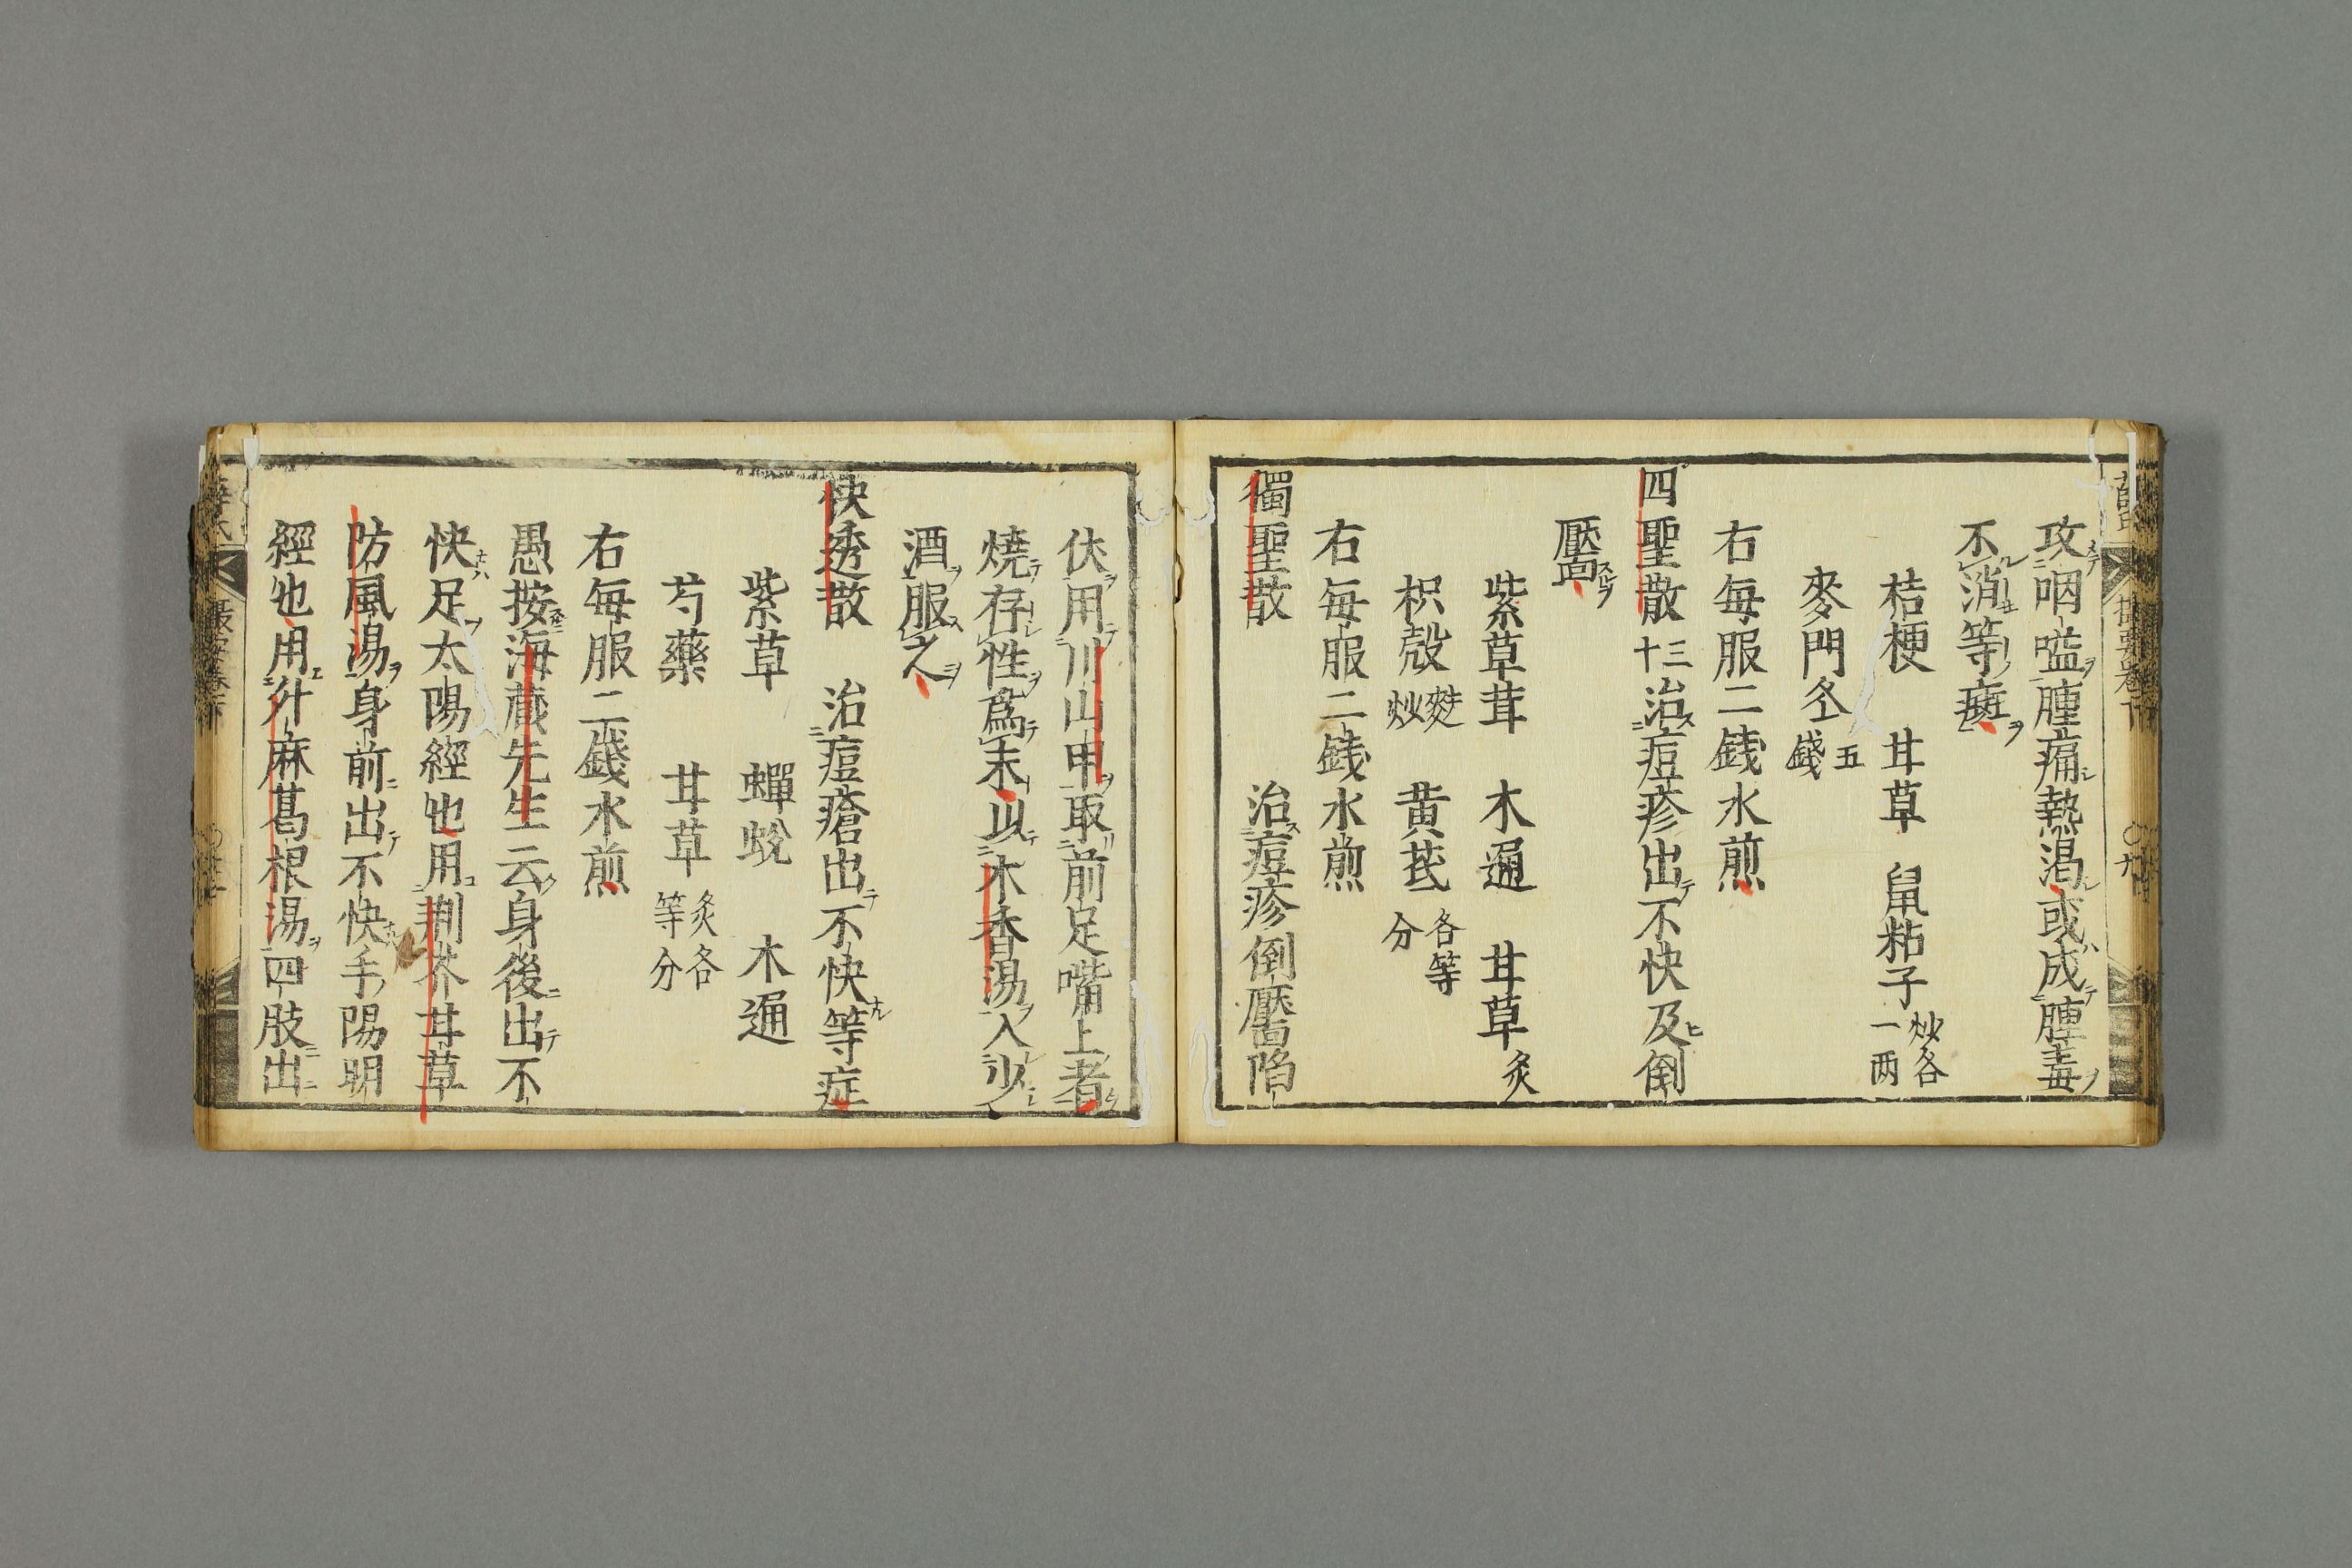 攻咽嗌腫痛熱渴或成腫毒
不消等癍
桔梗 甘草 鼠粘子 炒各一两
麥門冬 五錢
右每服二錢水煎
四聖散 十三 治痘疹出不快及倒
壓
紫草茸 木通 甘草 炙
枳殼 麩炒 黄芪 各等分
右每服二錢水煎
獨聖散 治痘疹倒壓陷
伏用川山甲取前足嘴上者
燒存性爲末以木香湯入少
酒服之
快透散 治痘瘡出不快等症
紫草 蟬蛻 木通
芍藥 甘草 炙各等分
右每服二錢水煎
愚按海藏先生云身後出不
快足太陽經也用荆芥甘草
防風湯身前出不快手陽明
經也用升麻葛根湯四肢出